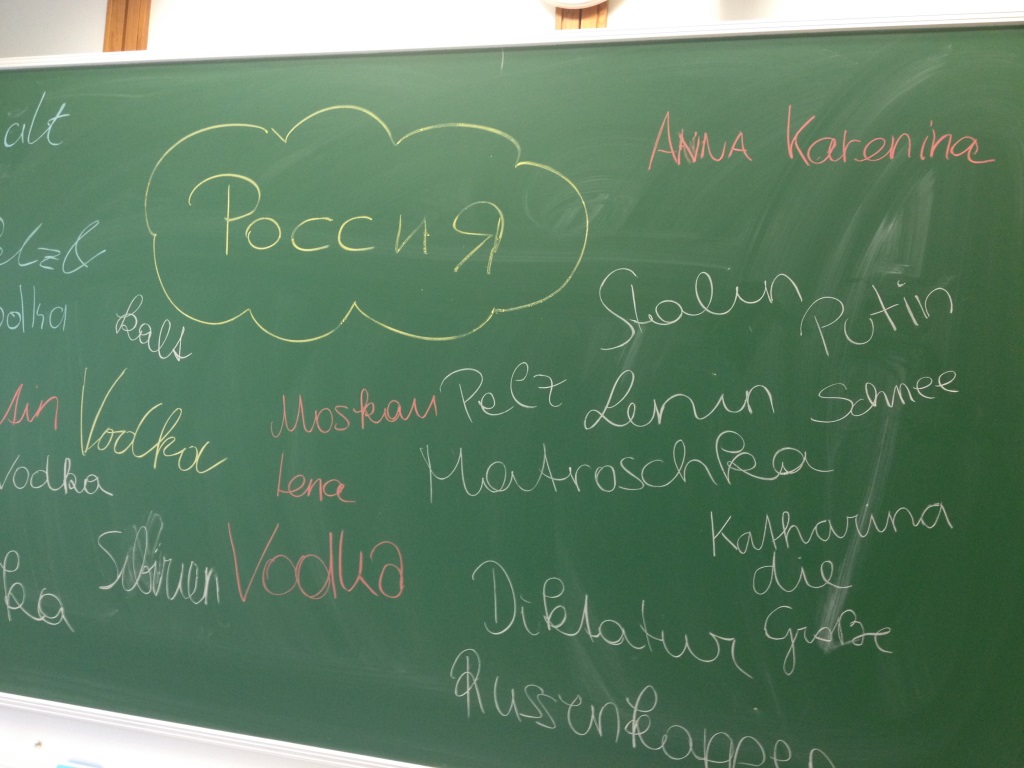 alt
Россия
Anna Karenina
Pelz &
odka
kalt
Stalin
Putin
Vodka
Moskau
Pelz
Lenin
Schnee
Vodka
Lena
Matroschka
Katharina
die
Große
Sibirien
Vodka
ka
Diktatur
Russenkappen